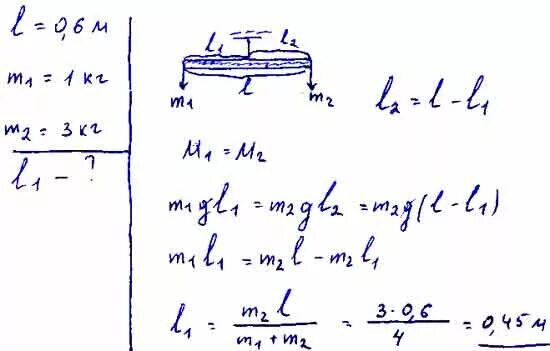 l = 0,6 м
m₁ = 1 кг
m₂ = 3 кг
l₁ - ?
l₁ l₂
l
m₁ m₂
l₂ = l - l₁
M₁ = M₂
m₁gl₁ = m₂gl₂ = m₂g(l - l₁)
m₁l₁ = m₂l - m₂l₁
l₁ = m₂l / (m₁ + m₂) = 3·0,6 / 4 = 0,45 м